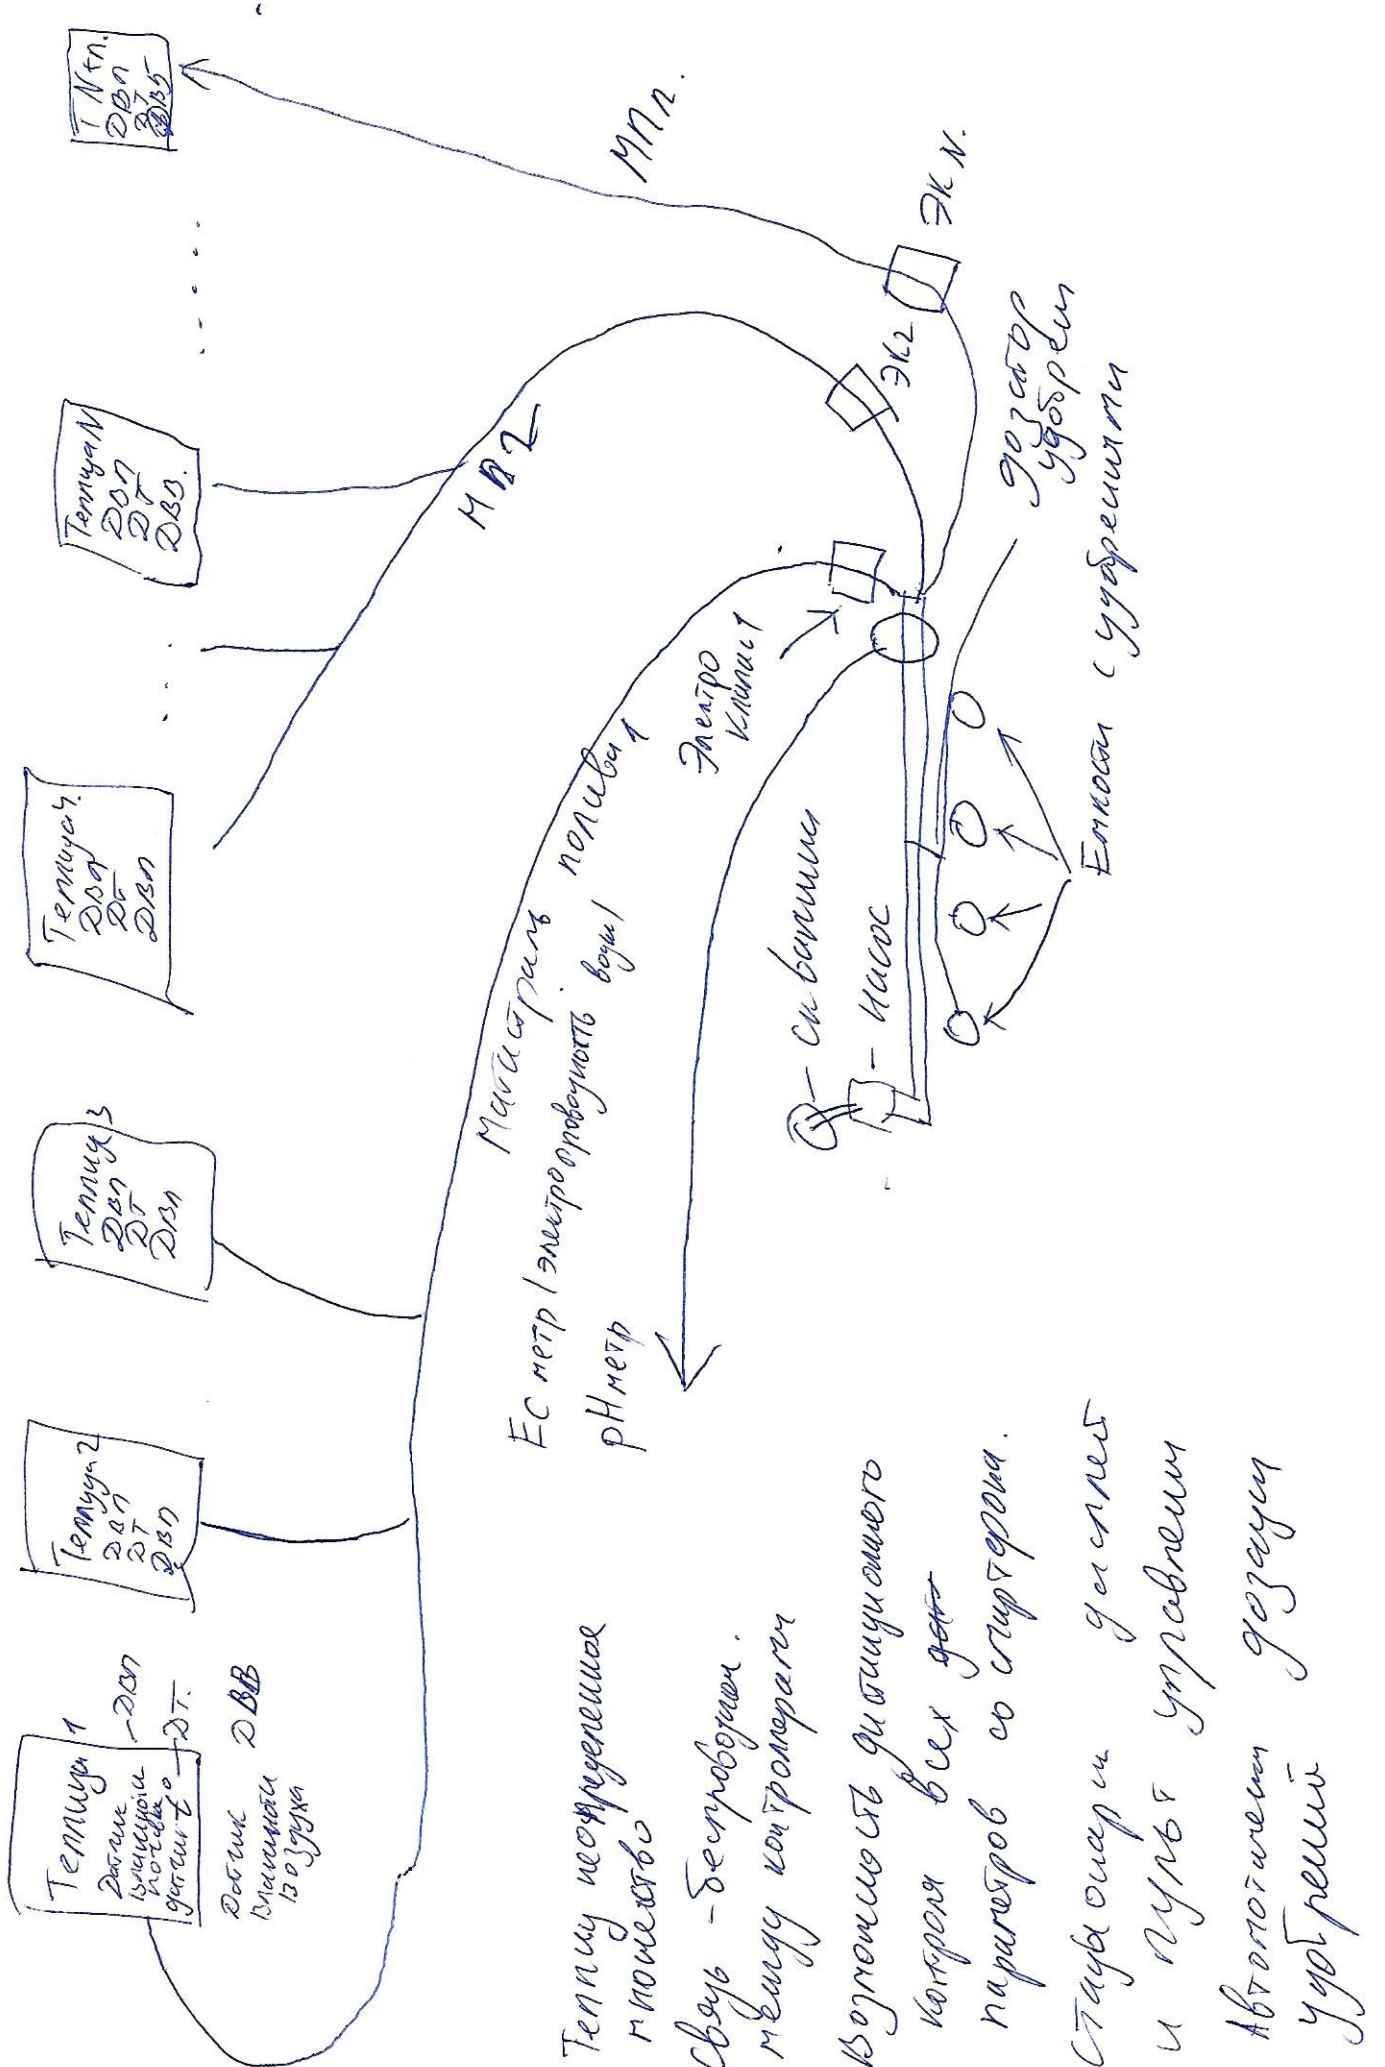 Теплица 1
Датчик
влажности
почвы
– ДВП
датчик t°
– ДТ.
Датчик
влажности
воздуха
ДВВ
Теплица 2
ДВП
ДТ
ДВП
Теплица 3
ДВП
ДТ
ДВП
Теплица 4.
ДВП
ДТ
ДВП
Теплица N
ДВП
ДТ
ДВВ.
Т N+n.
ДВП
ДТ
Магистраль полива 1
МП 2
МП n.
ЕС метр / электропроводность воды /
pH метр
Электро
клапан 1
ЭК 2
ЭК N.
– скважина
– насос
дозатор
удобрений
Емкости с удобрениями
Теплиц неопределенное
множество
Связь – беспроводная.
между контроллерами
Возможность дистанционного
контроля всех
параметров со смартфона.
Стационарный дисплей
и пульт управления
Автоматическая дозация
удобрений